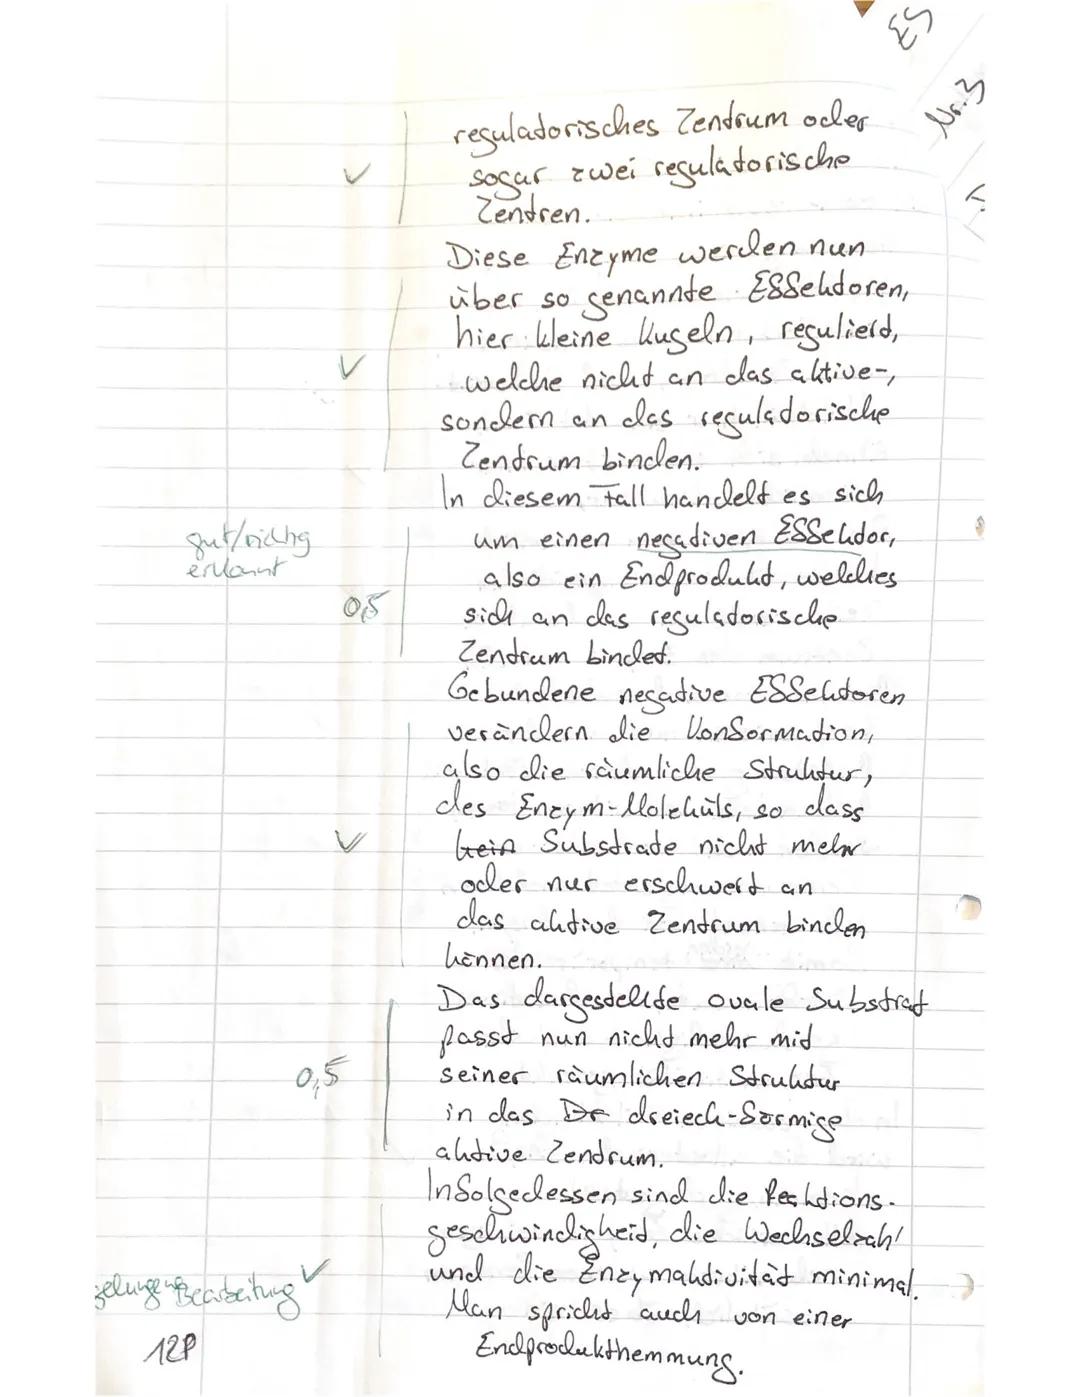 ES
Nr. 3
regulatorisches Zentrum oder
sogar zwei regulatorische
Zentren.
Diese Enzyme werden nun
über so genannte Effektoren,
hier kleine Kugeln, reguliert,
welche nicht an das aktive-,
sondern an das regulatorische
Zentrum binden.
In diesem Fall handelt es sich
gut/richtig
um einen negativen Effektor,
erkannt
also ein Endprodukt, welches
0,5
sich an das regulatorische
Zentrum bindet.
Gebundene negative Effektoren
verändern die Konformation,
also die räumliche Struktur,
des Enzym-Moleküls, so dass
kein Substrate nicht mehr
oder nur erschwert an
das aktive Zentrum binden
können.
Das dargestellte ovale Substrat
passt nun nicht mehr mit
0,5
seiner räumlichen Struktur
in das Dr dreieck-förmige
aktive Zentrum.
Infolgedessen sind die Reaktions-
geschwindigkeit, die Wechselzahl
und die Enzymaktivität minimal.
gelungene Bearbeitung
Man spricht auch von einer
12P
Endprodukthemmung.